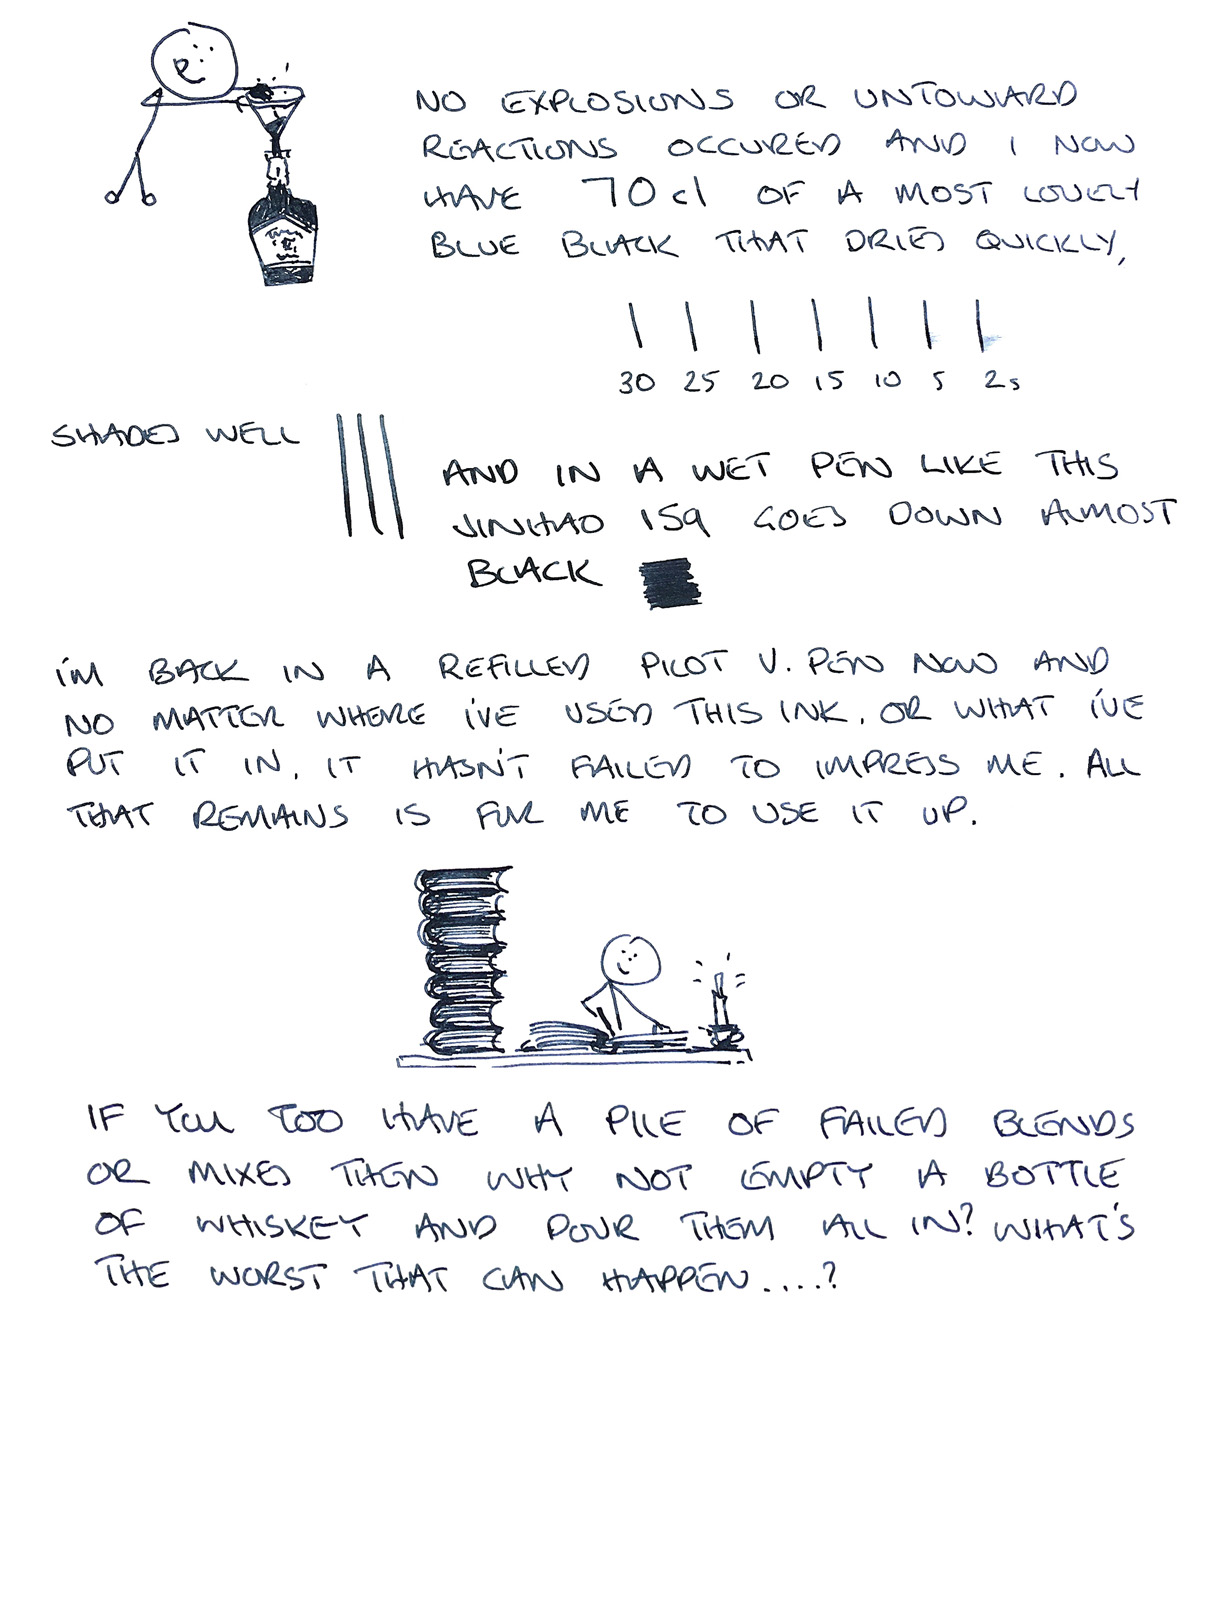 NO EXPLOSIONS OR UNTOWARD
REACTIONS OCCURED AND I NOW
HAVE 70cl OF A MOST LOVELY
BLUE BLACK THAT DRIES QUICKLY,
30 25 20 15 10 5 2s
SHADES WELL
AND IN A WET PEN LIKE THIS
JINHAO 159 GOES DOWN ALMOST
BLACK
I'M BACK IN A REFILLED PILOT V. PEN NOW AND
NO MATTER WHERE I'VE USED THIS INK, OR WHAT I'VE
PUT IT IN, IT HASN'T FAILED TO IMPRESS ME. ALL
THAT REMAINS IS FUR ME TO USE IT UP.
IF YOU TOO HAVE A PILE OF FAILED BLENDS
OR MIXES THEN WHY NOT EMPTY A BOTTLE
OF WHISKEY AND POUR THEM ALL IN? WHAT'S
THE WORST THAT CAN HAPPEN....?